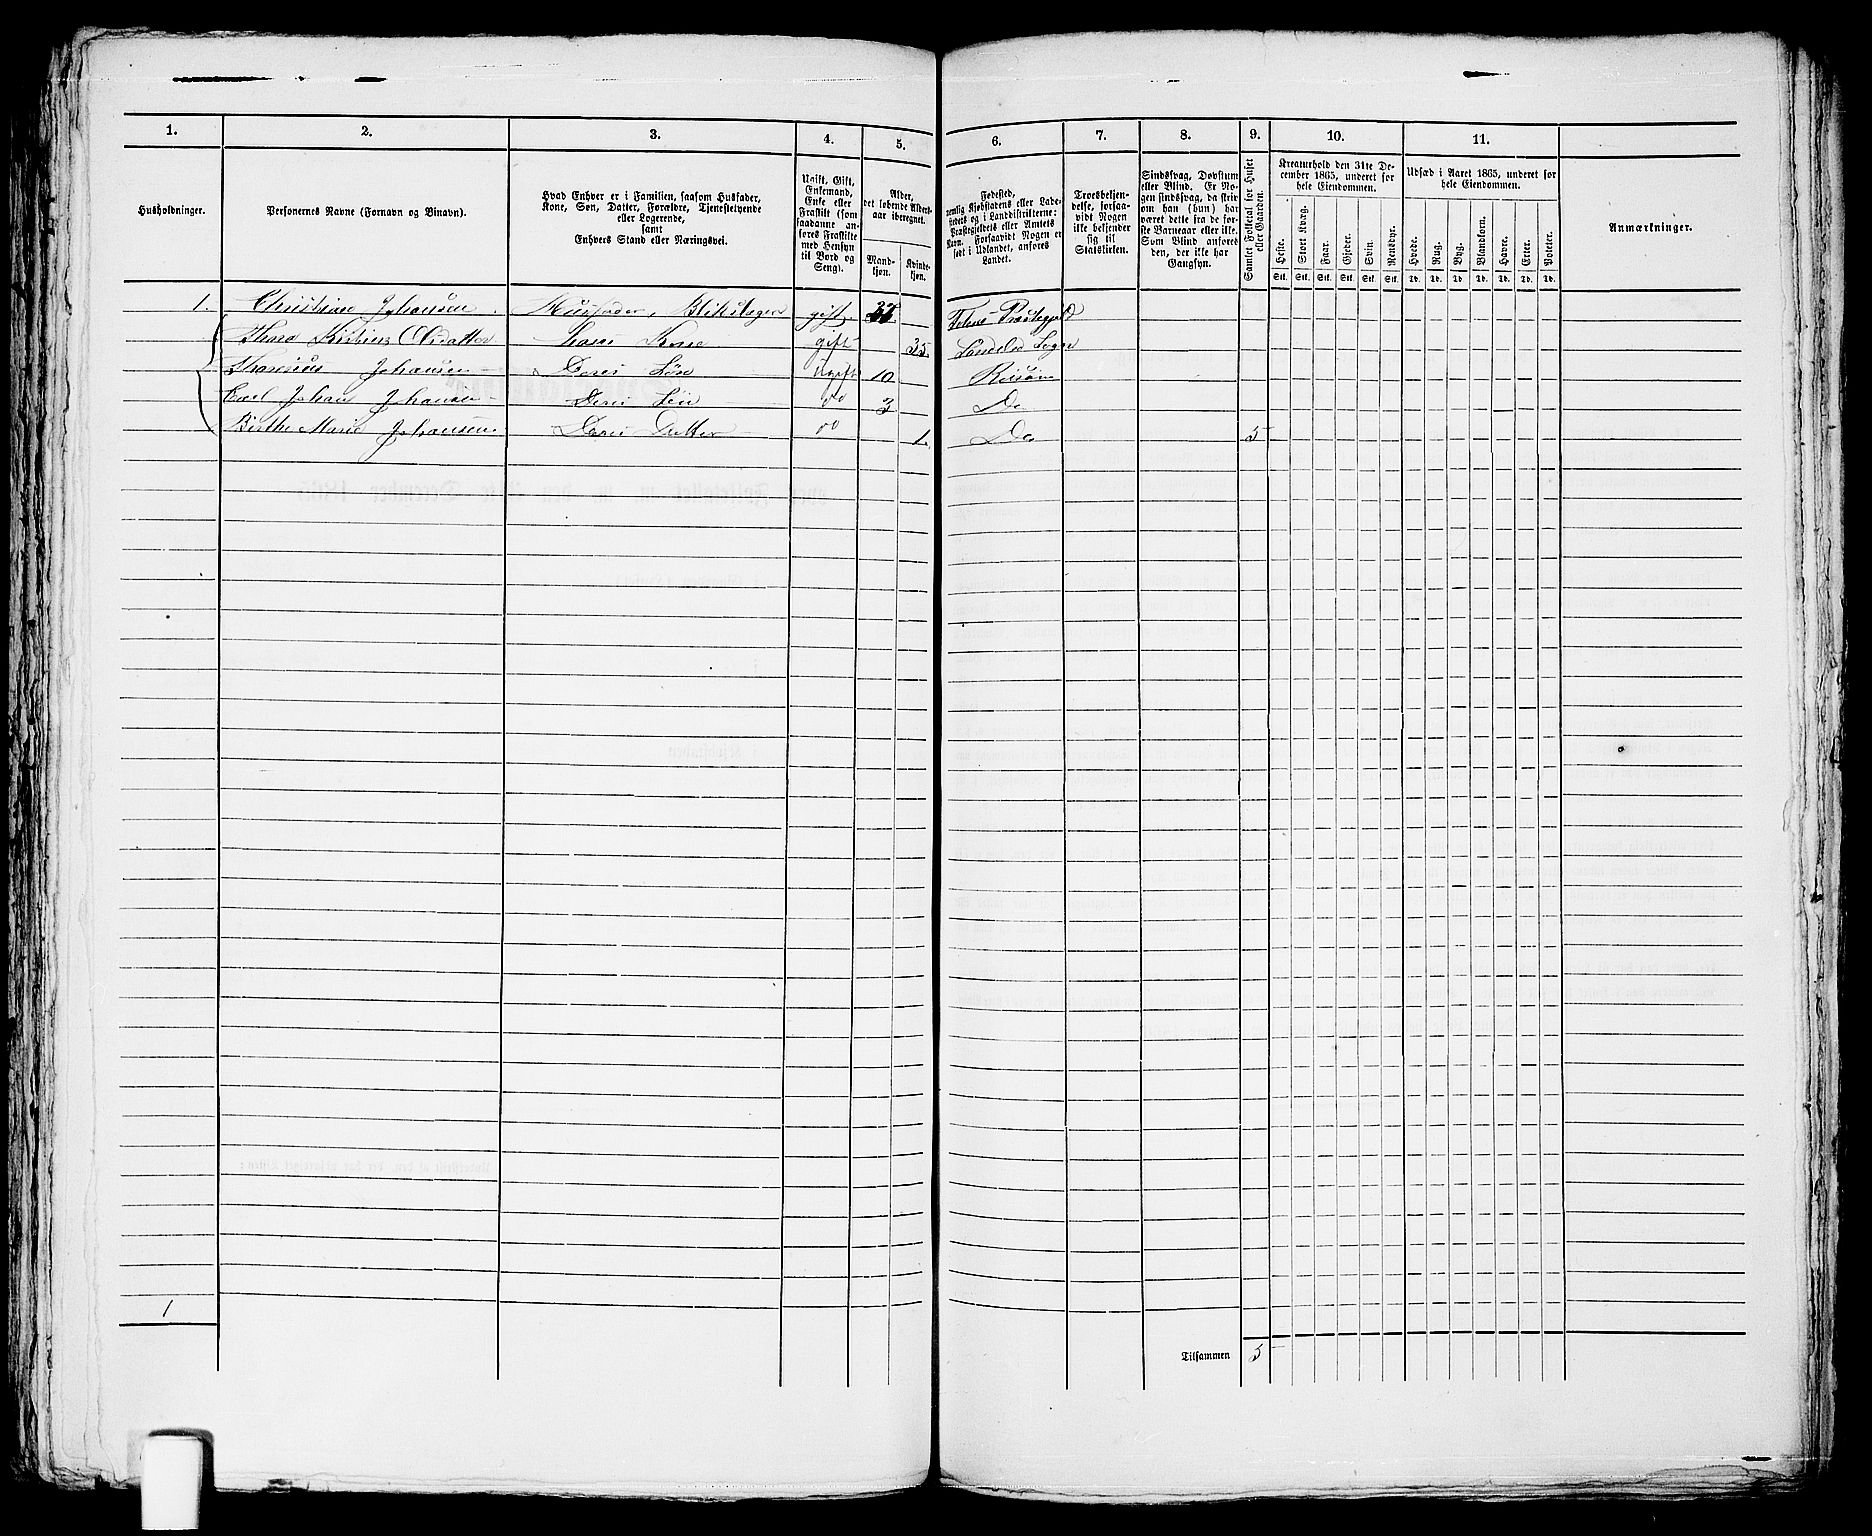 1. 2. 3. 4. 5. 6. 7. 8. 9. 10. 11.
Husholdninger.
Personernes Navne (Fornavn og Binavn).
Hvad Enhver er i Familien, saasom Husfader,
Kone, Søn, Datter, Forældre, Tjenestetyende
eller Logerende,
samt
Enhvers Stand eller Næringsvei.
Ugift, Gift,
Enkemand,
Enke eller
Fraskilt (som
saadanne an-
føres Fraskilte
med Hensyn
til Bord og
Seng).
Alder,
det løbende Alders-
aar iberegnet.
Mand-
kjøn.
Kvinde-
kjøn.
Fødested,
nemlig Kjøbstadens eller Lade-
stedets og i Landdistrikterne:
Præstegjeldets eller Amtets
Navn. Forsaavidt Nogen er
født i Udlandet, anføres
Landet.
Troesbekjen-
delse, forsaa-
vidt Nogen
ikke bekjender
sig til
Statskirken.
Sindssvag, Døvstum
eller Blind. Er No-
gen sindssvag, da skriv
om han (hun) har
været dette fra de før-
ste Barneaar eller ikke.
Som Blind anføres
den, der ikke har
Gangsyn.
Samlet Folketal for Huset
eller Gaarden.
Kreaturhold den 31te De-
cember 1865, underet for
hele Eiendommen.
Heste. Stort Kvæg. Faar. Gjeder. Svin. Rensdyr.
Stk. Stk. Stk. Stk. Stk. Stk.
Udsæd i Aaret 1865, underet for
hele Eiendommen.
Hvede. Rug. Byg. Blandkorn. Havre. Erter. Poteter.
Td. Td. Td. Td. Td. Td. Td.
Anmærkninger.
1. Christian Johansen. Husfader, gift.
Kirstine Hans Kone gift 35
Johansen Deres Søn Ugift 10 Risøer
Carl Johan Johansen Deres Søn do 3 Do
Birthe Marie Johansen Deres Datter do 1. Do 5
1
Tilsammen 5